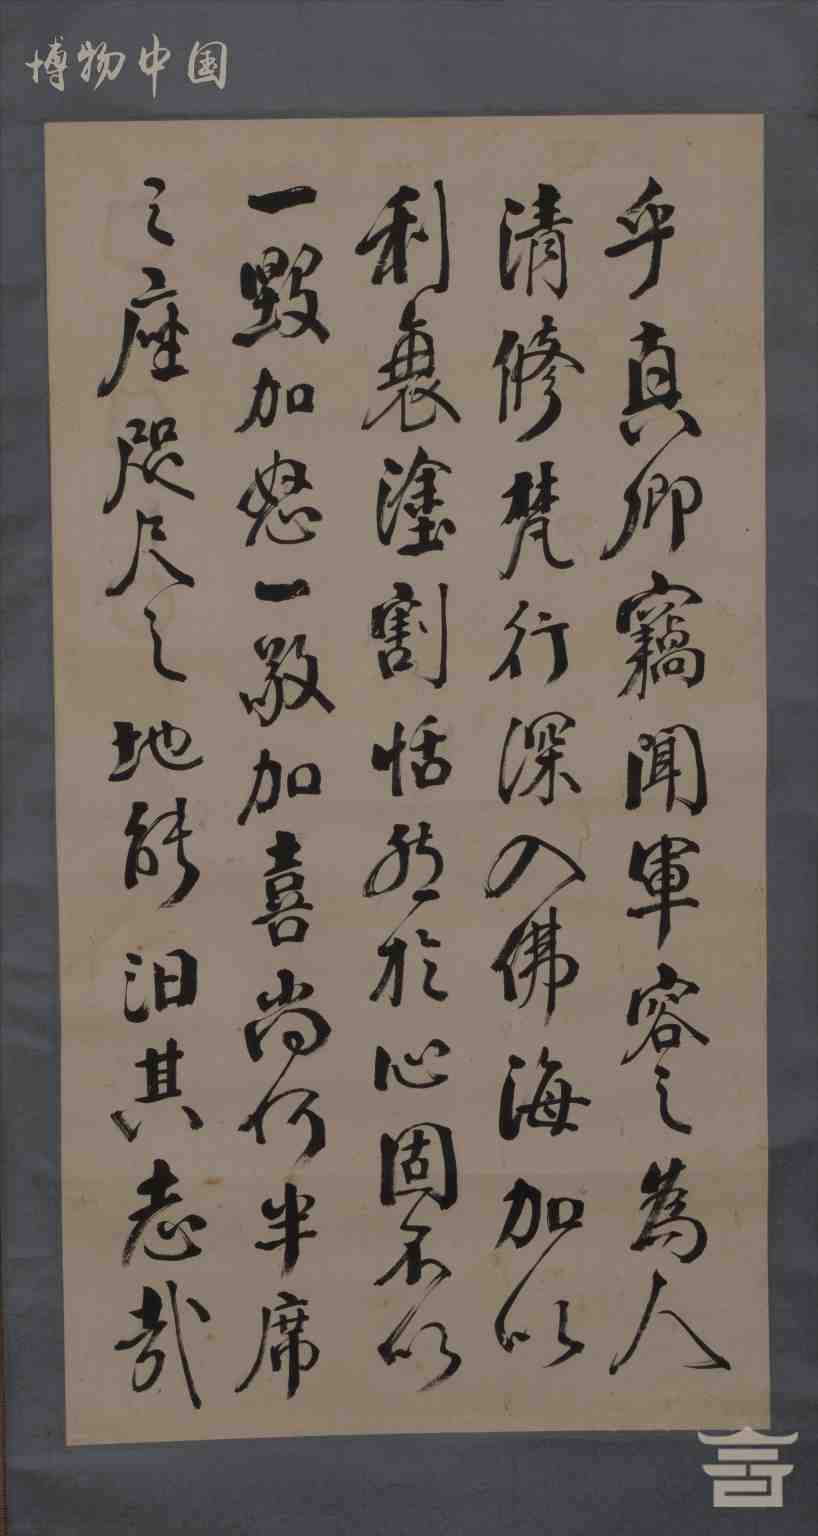 博物中国
乎真卿竊聞軍容之為人
清修梵行深入佛海加以
利衰塗割恬然於心固不以
一毀加怒一敬加喜尚何半席
之座咫尺之地能汩其志哉